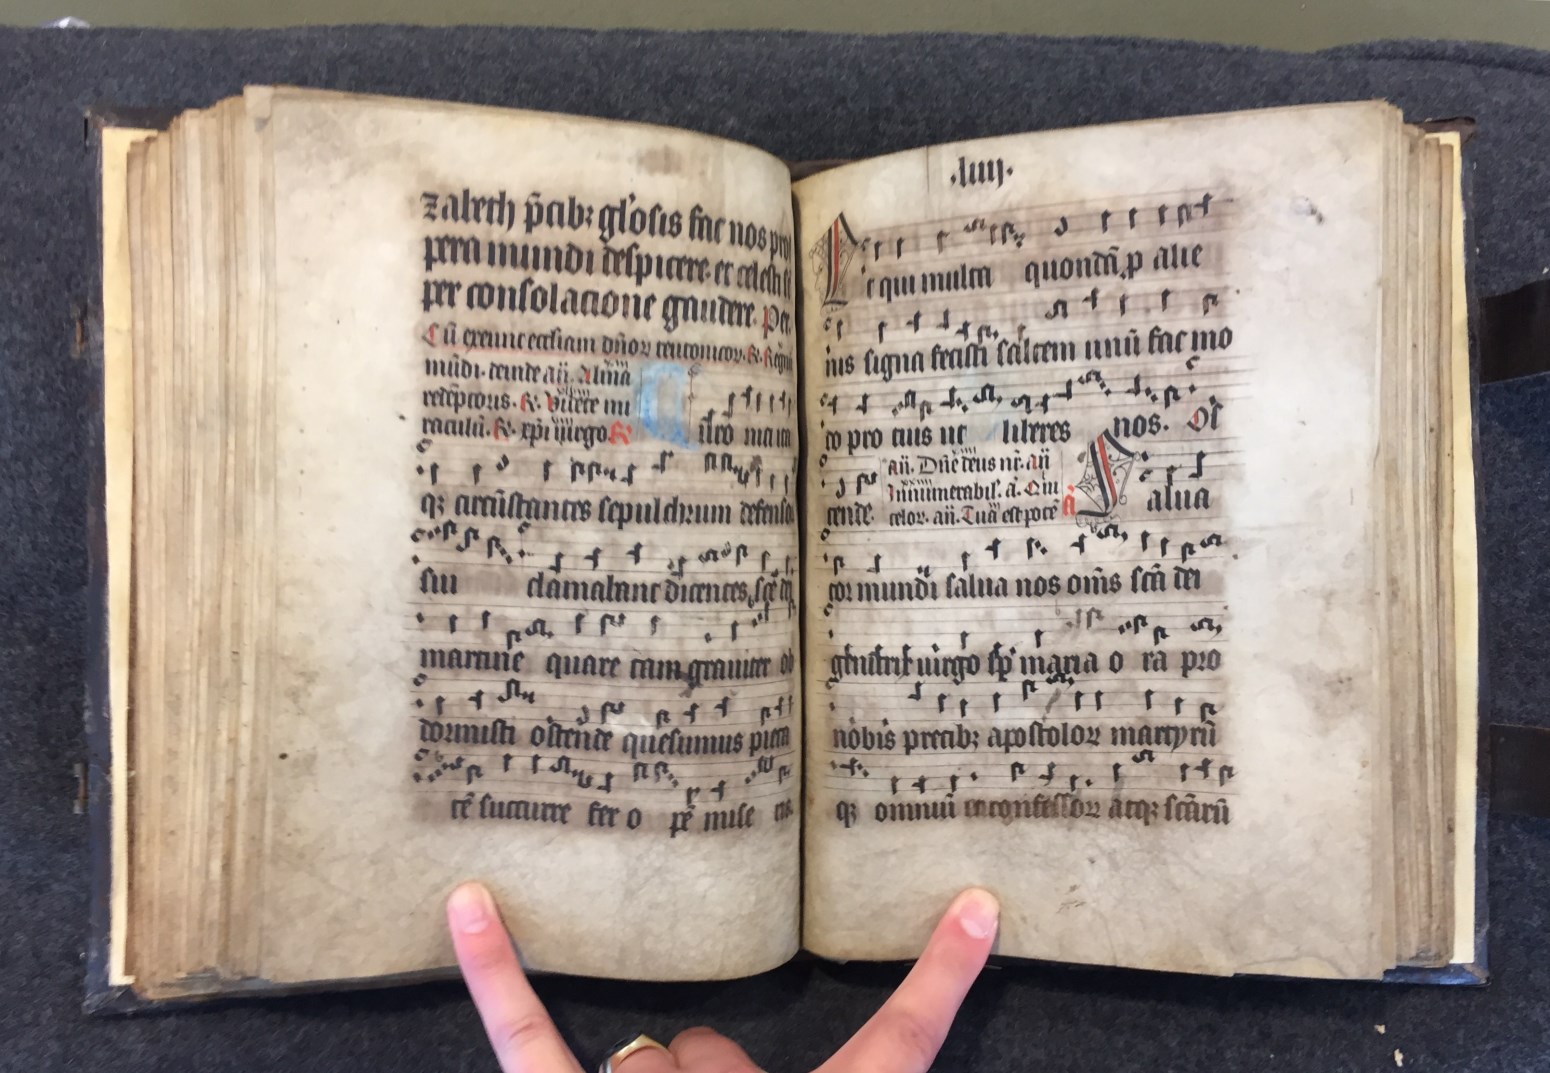 zabeth p̄cib; gl'osis fac nos pro
pera mundi despicere. et celesti sē
per consolatione gaudere. Per.
Cū exeunt ecclesiam dn̄oꝝ teutonicoꝝ. ℟. Regnū
mūdi. deinde añ. Alma
redēptoris. ℟. Videte mi
raculū. ℟. xp̄i uirgo ℟
uīco ma
qꝫ circūstantes sepulchrum defenso
sui clamabant dicentes, scē
martine quare tam grauiter ob
dormisti ostende quesumus pieta
tē succurre fer o
.liiij.
r qui multa quondā ꝓ alie
nis signa fecisti saltem unū fac mo
do pro tuis ut liberes nos. Ost
tende. añ. Dn̄e deus nr̄. añ
Innumerabil'. ā. Qui
celoꝝ. añ. Tua est potē ā Salua
tor mundi salua nos om̄s scā dei
genitrix uirgo sp̄ maria o ra pro
nobis precibꝫ apostoloꝝ martyrū
qꝫ omniū cōfessoꝝ atqꝫ scārū